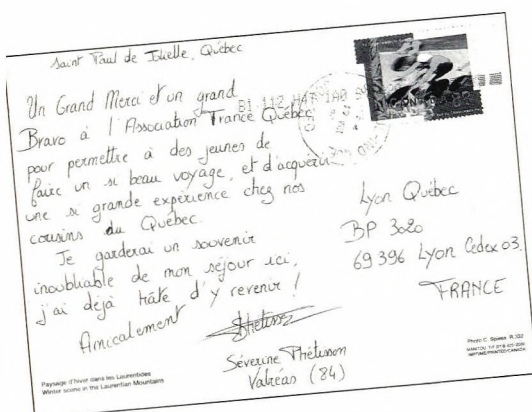 Saint Paul de Joliette, Québec
Un Grand Merci et un grand
Bravo à l'Association France Québec
pour permettre à des jeunes de
faire un si beau voyage, et d'acquérir
une si grande expérience chez nos
cousins du Québec.
Je garderai un souvenir
inoubliable de mon séjour ici,
j'ai déjà hâte d'y revenir !
Amicalement
Séverine Thétisson
Valréas (84)
Lyon Québec
BP 3020
69 396 Lyon Cedex 03.
FRANCE
Paysage d'hiver dans les Laurentides
Winter scene in the Laurentian Mountains
Photo C. Speess R.332
IMPRIMÉ/PRINTED/CANADA